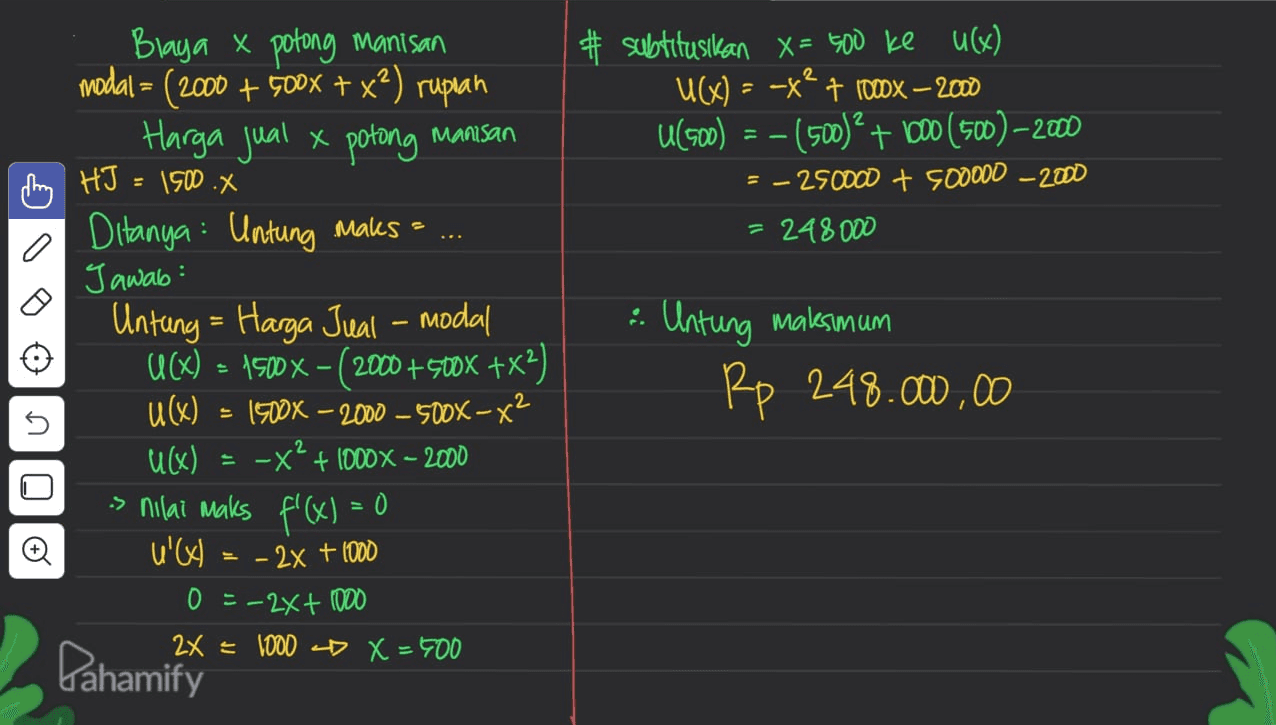 Biaya x potong manisan
modal = (2000 + 500x + x²) rupiah
Harga jual x potong manisan
HJ = 1500 .x
Ditanya : Untung maks = ...
Jawab :
Untung = Harga Jual – modal
U(x) = 1500x – (2000 + 500x + x²)
U(x) = 1500x – 2000 – 500x – x²
U(x) = -x² + 1000x – 2000
:> nilai maks f'(x) = 0
U'(x) = -2x + 1000
0 = -2x + 1000
2x = 1000 → x = 500
Pahamify
# subtitusikan x = 500 ke u(x)
U(x) = -x² + 1000x – 2000
U(500) = -(500)² + 1000(500) – 2000
= -250000 + 500000 – 2000
= 248000
∴ Untung maksimum
Rp 248.000,00